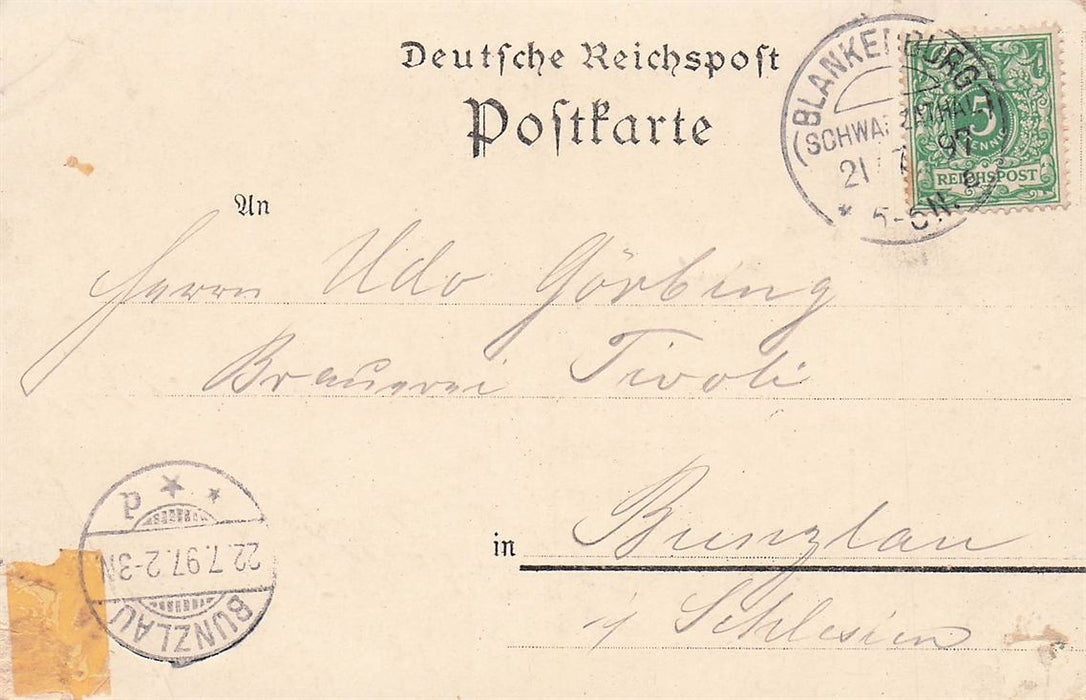 Deutsche Reichspost
Postkarte
BLANKENBURG
SCHWARZATHAL
21 7 97
5-6N.
5
PFENNIG
REICHSPOST
An
Herrn Udo Görbing
Brauerei Tivoli
in Bunzlau
i/ Schlesien
BUNZLAU
22.7.97.2-3N